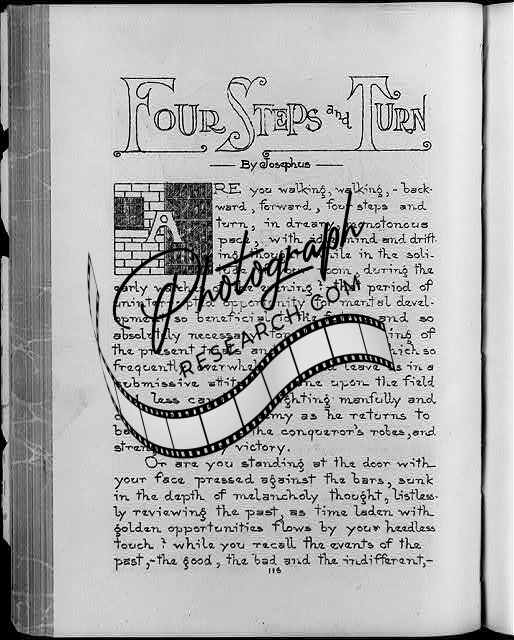 FOUR STEPS and TURN
By Josephus
ARE you walking, walking, - back-
ward, forward, four steps and
turn, in dreamy monotonous
pace, with idle mind and drift-
ing thought while in the soli-
room, during the
early watches of the evening? the period of
opportunity for mental devel-
opment so beneficial to the and so
absolutely necessary for ing of
the present which so
frequently overwhelm leave us in a
submissive attitude upon the field
and less ca fighting manfully and
my as he returns to
the conqueror's robes, and
victory.
Or are you standing at the door with
your face pressed against the bars, sunk
in the depth of melancholy thought, listless-
ly reviewing the past, as time laden with
golden opportunities flows by your heedless
touch? while you recall the events of the
past,-the good, the bad and the indifferent,-
115
Photograph
RESEARCH.COM